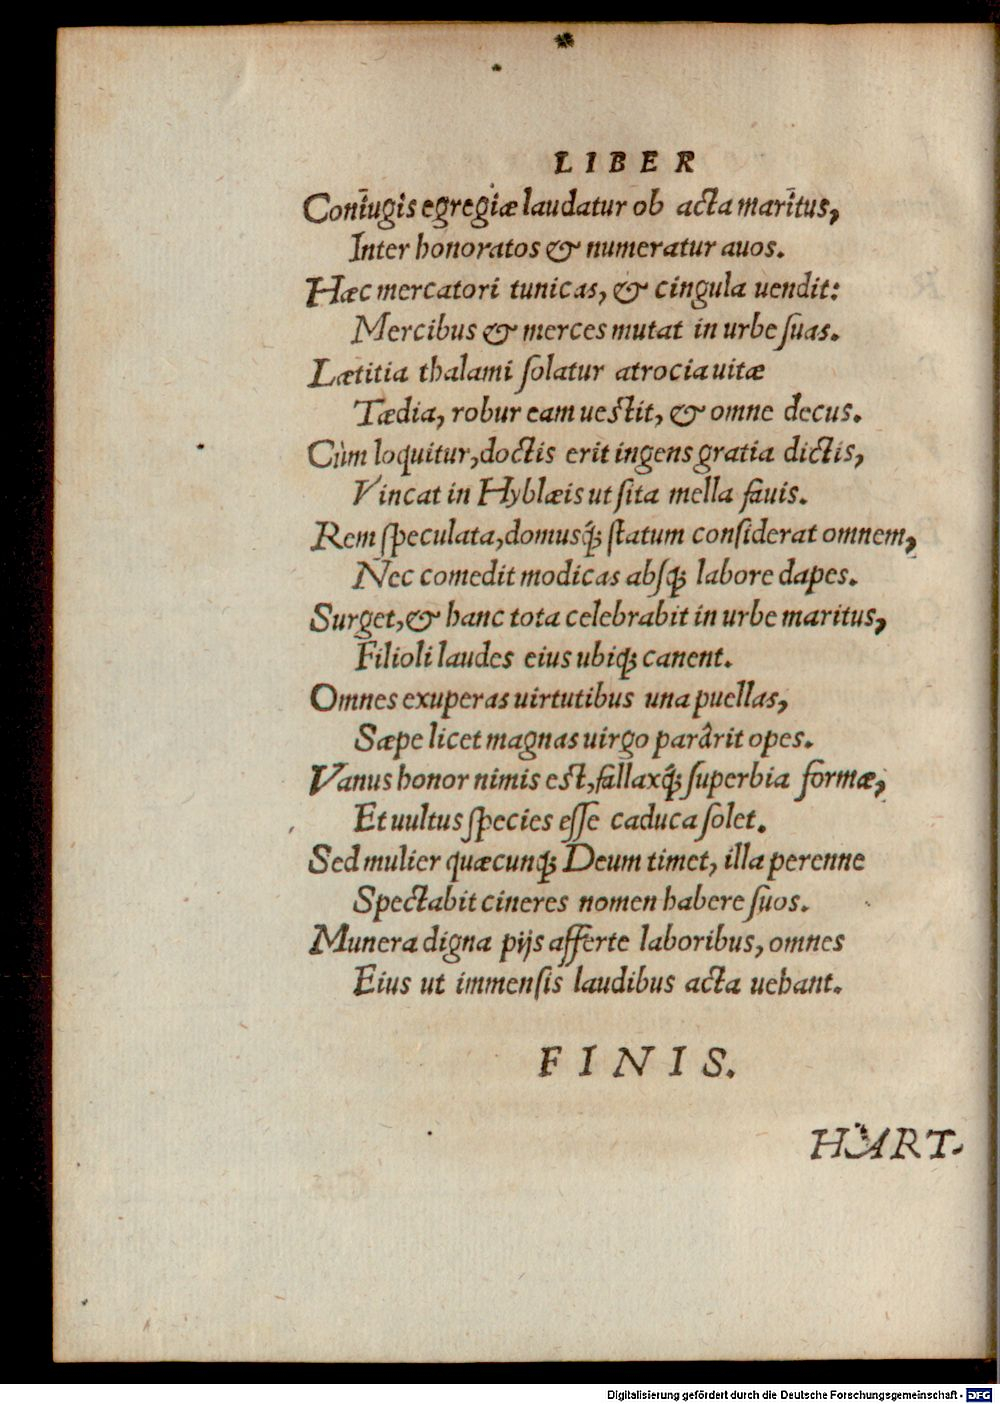 LIBER
Coniugis egregiæ laudatur ob acta maritus,
Inter honoratos & numeratur auos.
Hæc mercatori tunicas, & cingula uendit:
Mercibus & merces mutat in urbe ſuas.
Lætitia thalami ſolatur atrocia uitæ
Tædia, robur eam ueſtit, & omne decus.
Cùm loquitur, doctis erit ingens gratia dictis,
Vincat in Hyblæis ut ſita mella fauis.
Rem ſpeculata, domusq́; ſtatum conſiderat omnem,
Nec comedit modicas abſq; labore dapes.
Surget, & hanc tota celebrabit in urbe maritus,
Filioli laudes eius ubiq; canent.
Omnes exuperas uirtutibus una puellas,
Sæpe licet magnas uirgo parârit opes.
Vanus honor nimis eſt, fallaxq́; ſuperbia formæ,
Et uultus ſpecies eſſe caduca ſolet.
Sed mulier quæcunq; Deum timet, illa perenne
Spectabit cineres nomen habere ſuos.
Munera digna pijs afferte laboribus, omnes
Eius ut immenſis laudibus acta uehant.
FINIS.
HART.
Digitalisierung gefördert durch die Deutsche Forschungsgemeinschaft - DFG